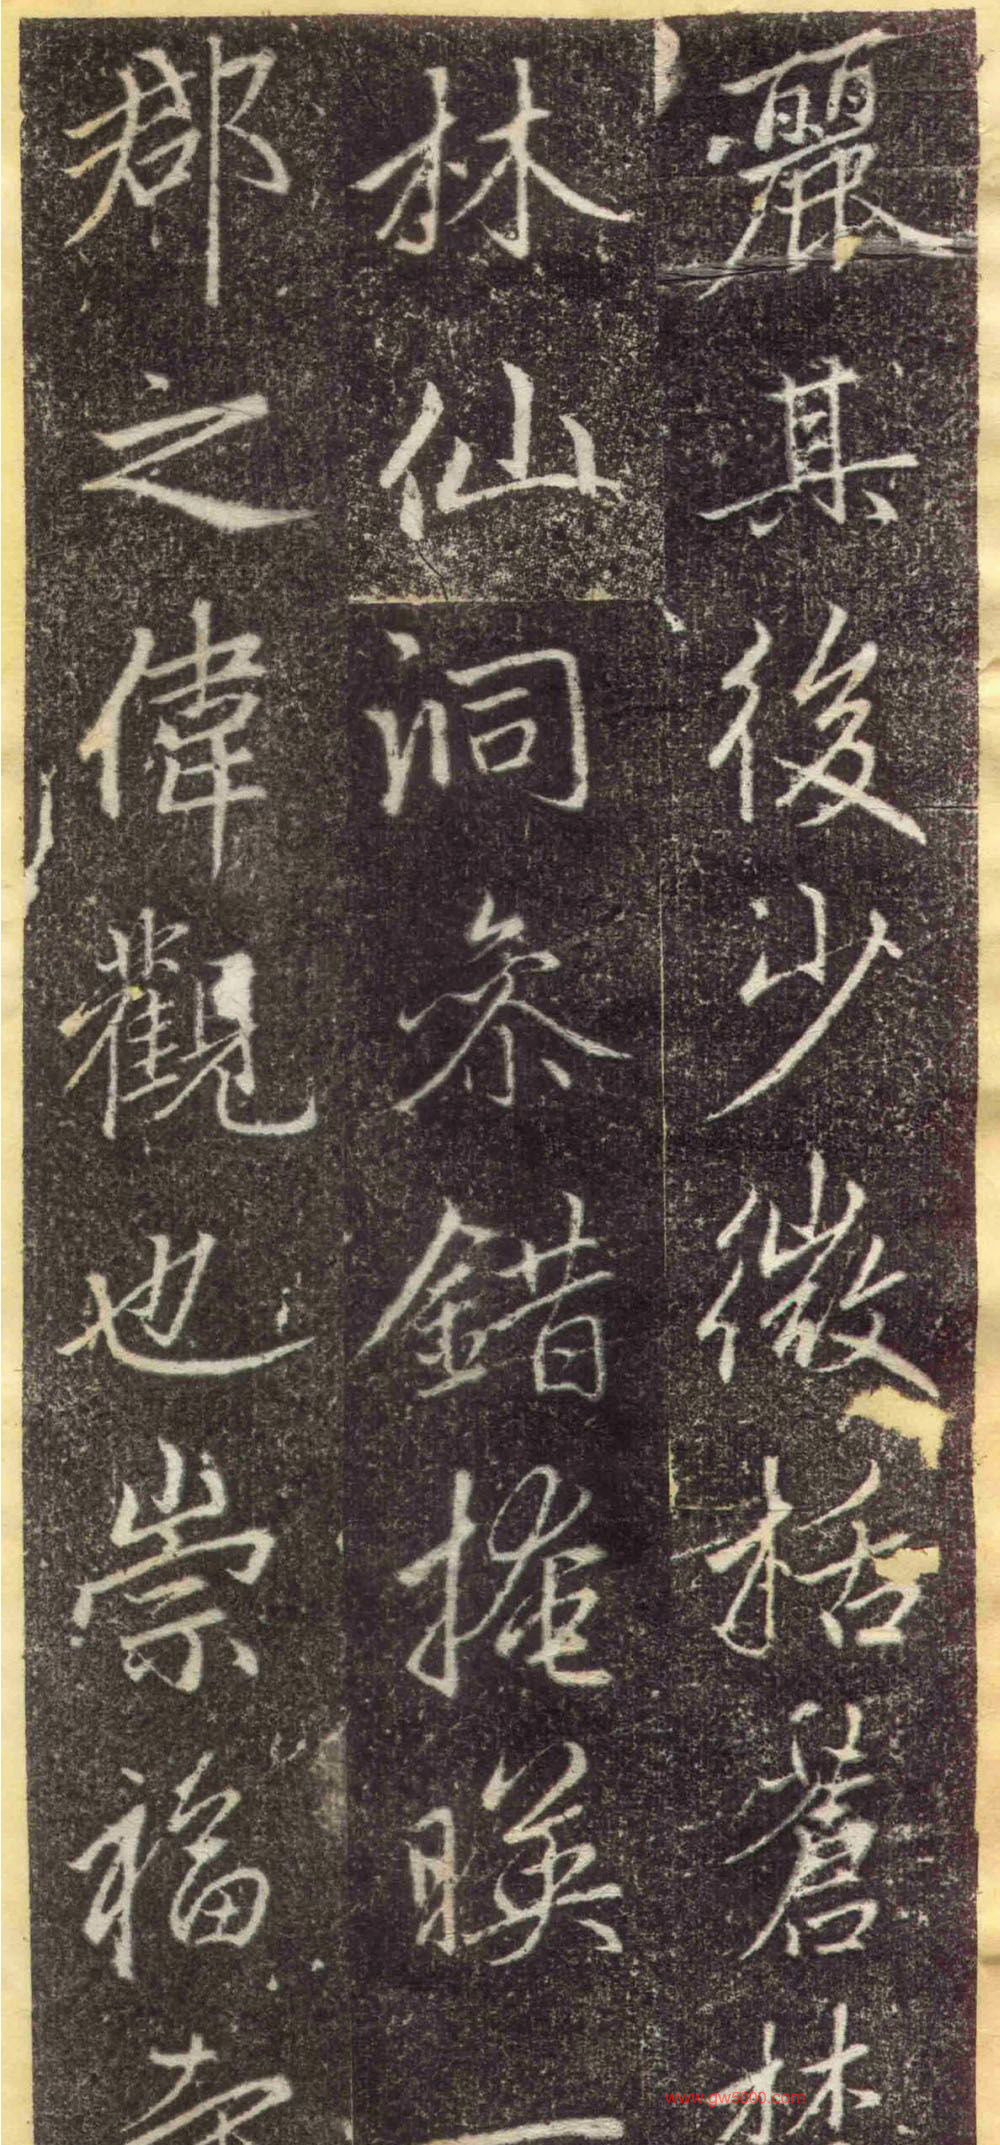 麗其後少微括蒼林
林仙洞參錯掩暎一
郡之偉觀也崇福寺
www.gw5000.com